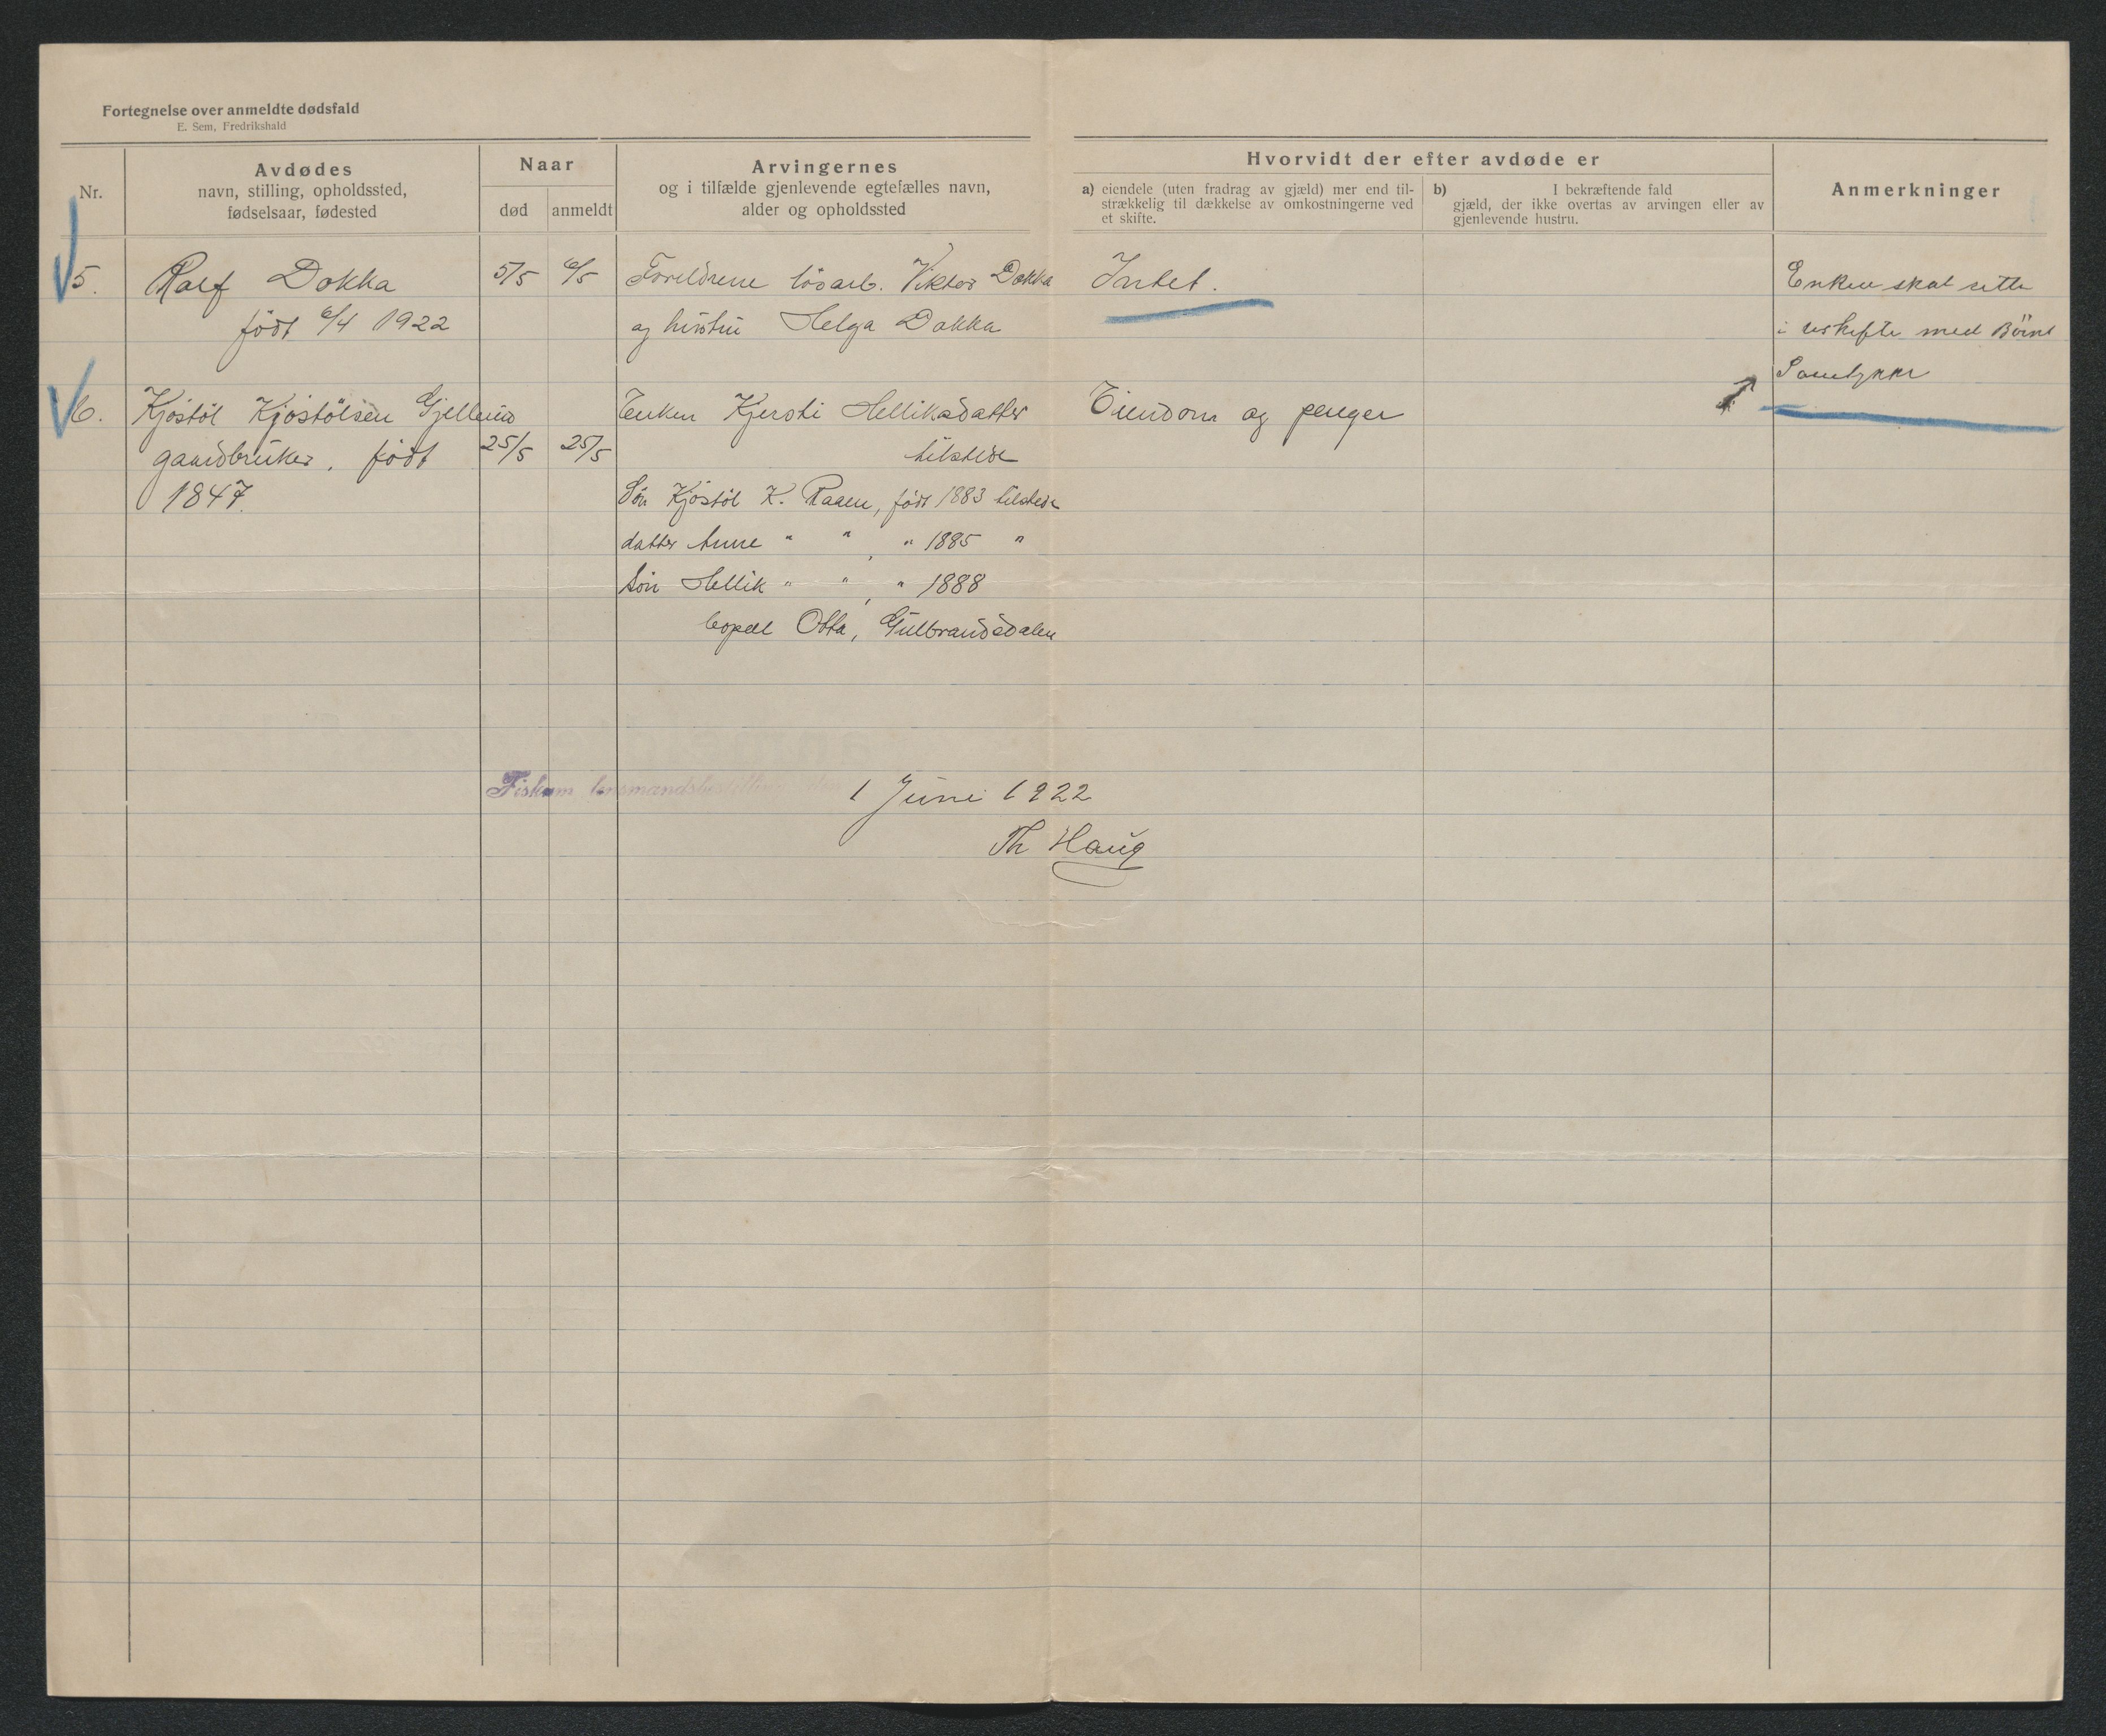 Fortegnelse over anmeldte dødsfald
E. Sem, Fredrikshald
Nr.
Avdødes
navn, stilling, opholdssted,
fødselsaar, fødested
Naar
død
anmeldt
Arvingernes
og i tilfælde gjenlevende egtefælles navn,
alder og opholdssted
Hvorvidt der efter avdøde er
a) eiendele (uten fradrag av gjæld) mer end til-
strækkelig til dækkelse av omkostningerne ved
et skifte.
b) I bekræftende fald
gjæld, der ikke overtas av arvingen eller av
gjenlevende hustru.
Anmerkninger
5.
Ralf Dokka
født 6/4 1922
5/5
6/5
Foreldrene løsarb. Viktor Dokka
og hustru Helga Dokka
Intet.
Enken skal sitte
i uskifte med Börns
Samtykke
6.
Kjøstöl Kjøstölsen Gjellerud
gaardbruker, født
1847.
25/5
25/5
Enken Kjersti Helliksdatter
tilstede
Søn Kjøstöl K. Raaen, født 1883 tilstede
datter Anne " " , " 1885 "
Søn Hellik " " , " 1888
bopæl Otta, Gulbrandsdalen
Eiendom og penger
Fiskum lensmandsbestilling den 1 Juni 1922
Th Haug